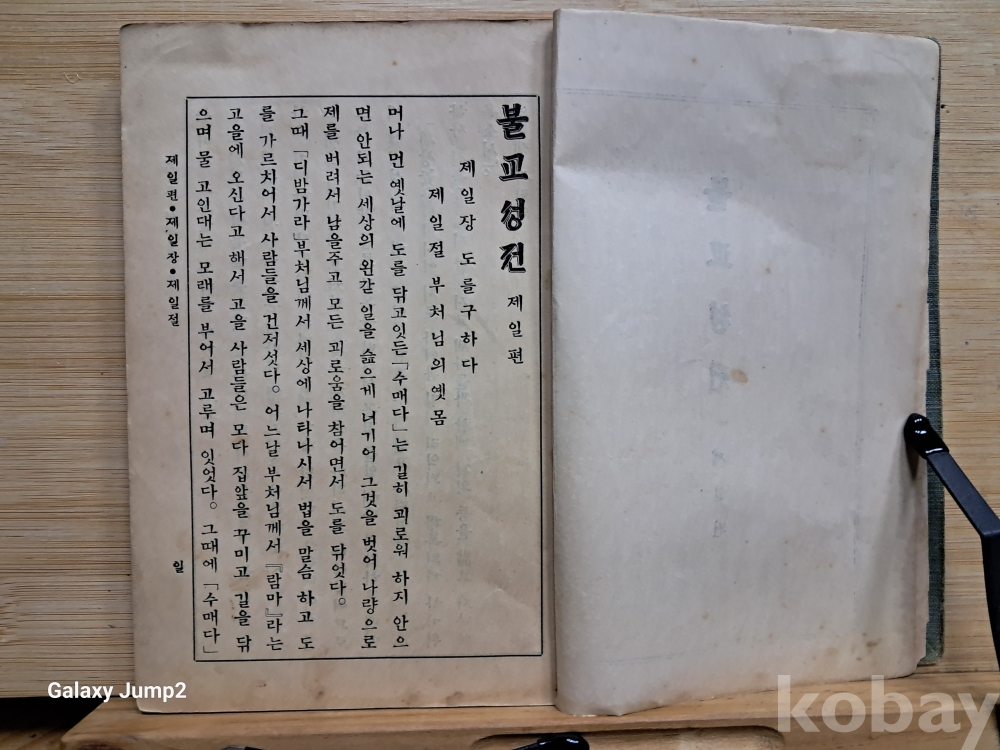 불교성전 제일편
제일장 도를구하다
제일절 부처님의옛몸
머나먼 옛날에 도를 닦고잇든「수매다」는 길히 괴로워 하지 안으
면 안되는 세상의 왼갇 일을 슳으게 너기어 그것을 벗어나랴으로
제를 버려서 남을주고 모든 괴로움을 참어면서 도를 닦엇다。
그때「디밤가라」부처님께서 세상에 나타나시서 법을 말슴 하고 도
를 가르치어서 사람들을 건저섯다。어느날 부처님께서『람마』라는
고을에 오신다고 해서 고을 사람들은 모다 집앞을 꾸미고 길을 닦
으며 물 고인대는 모래를 부어서 고루며 잇엇다。그때에「수매다」
제일편•제일장•제일절
일
Galaxy Jump2
kobay